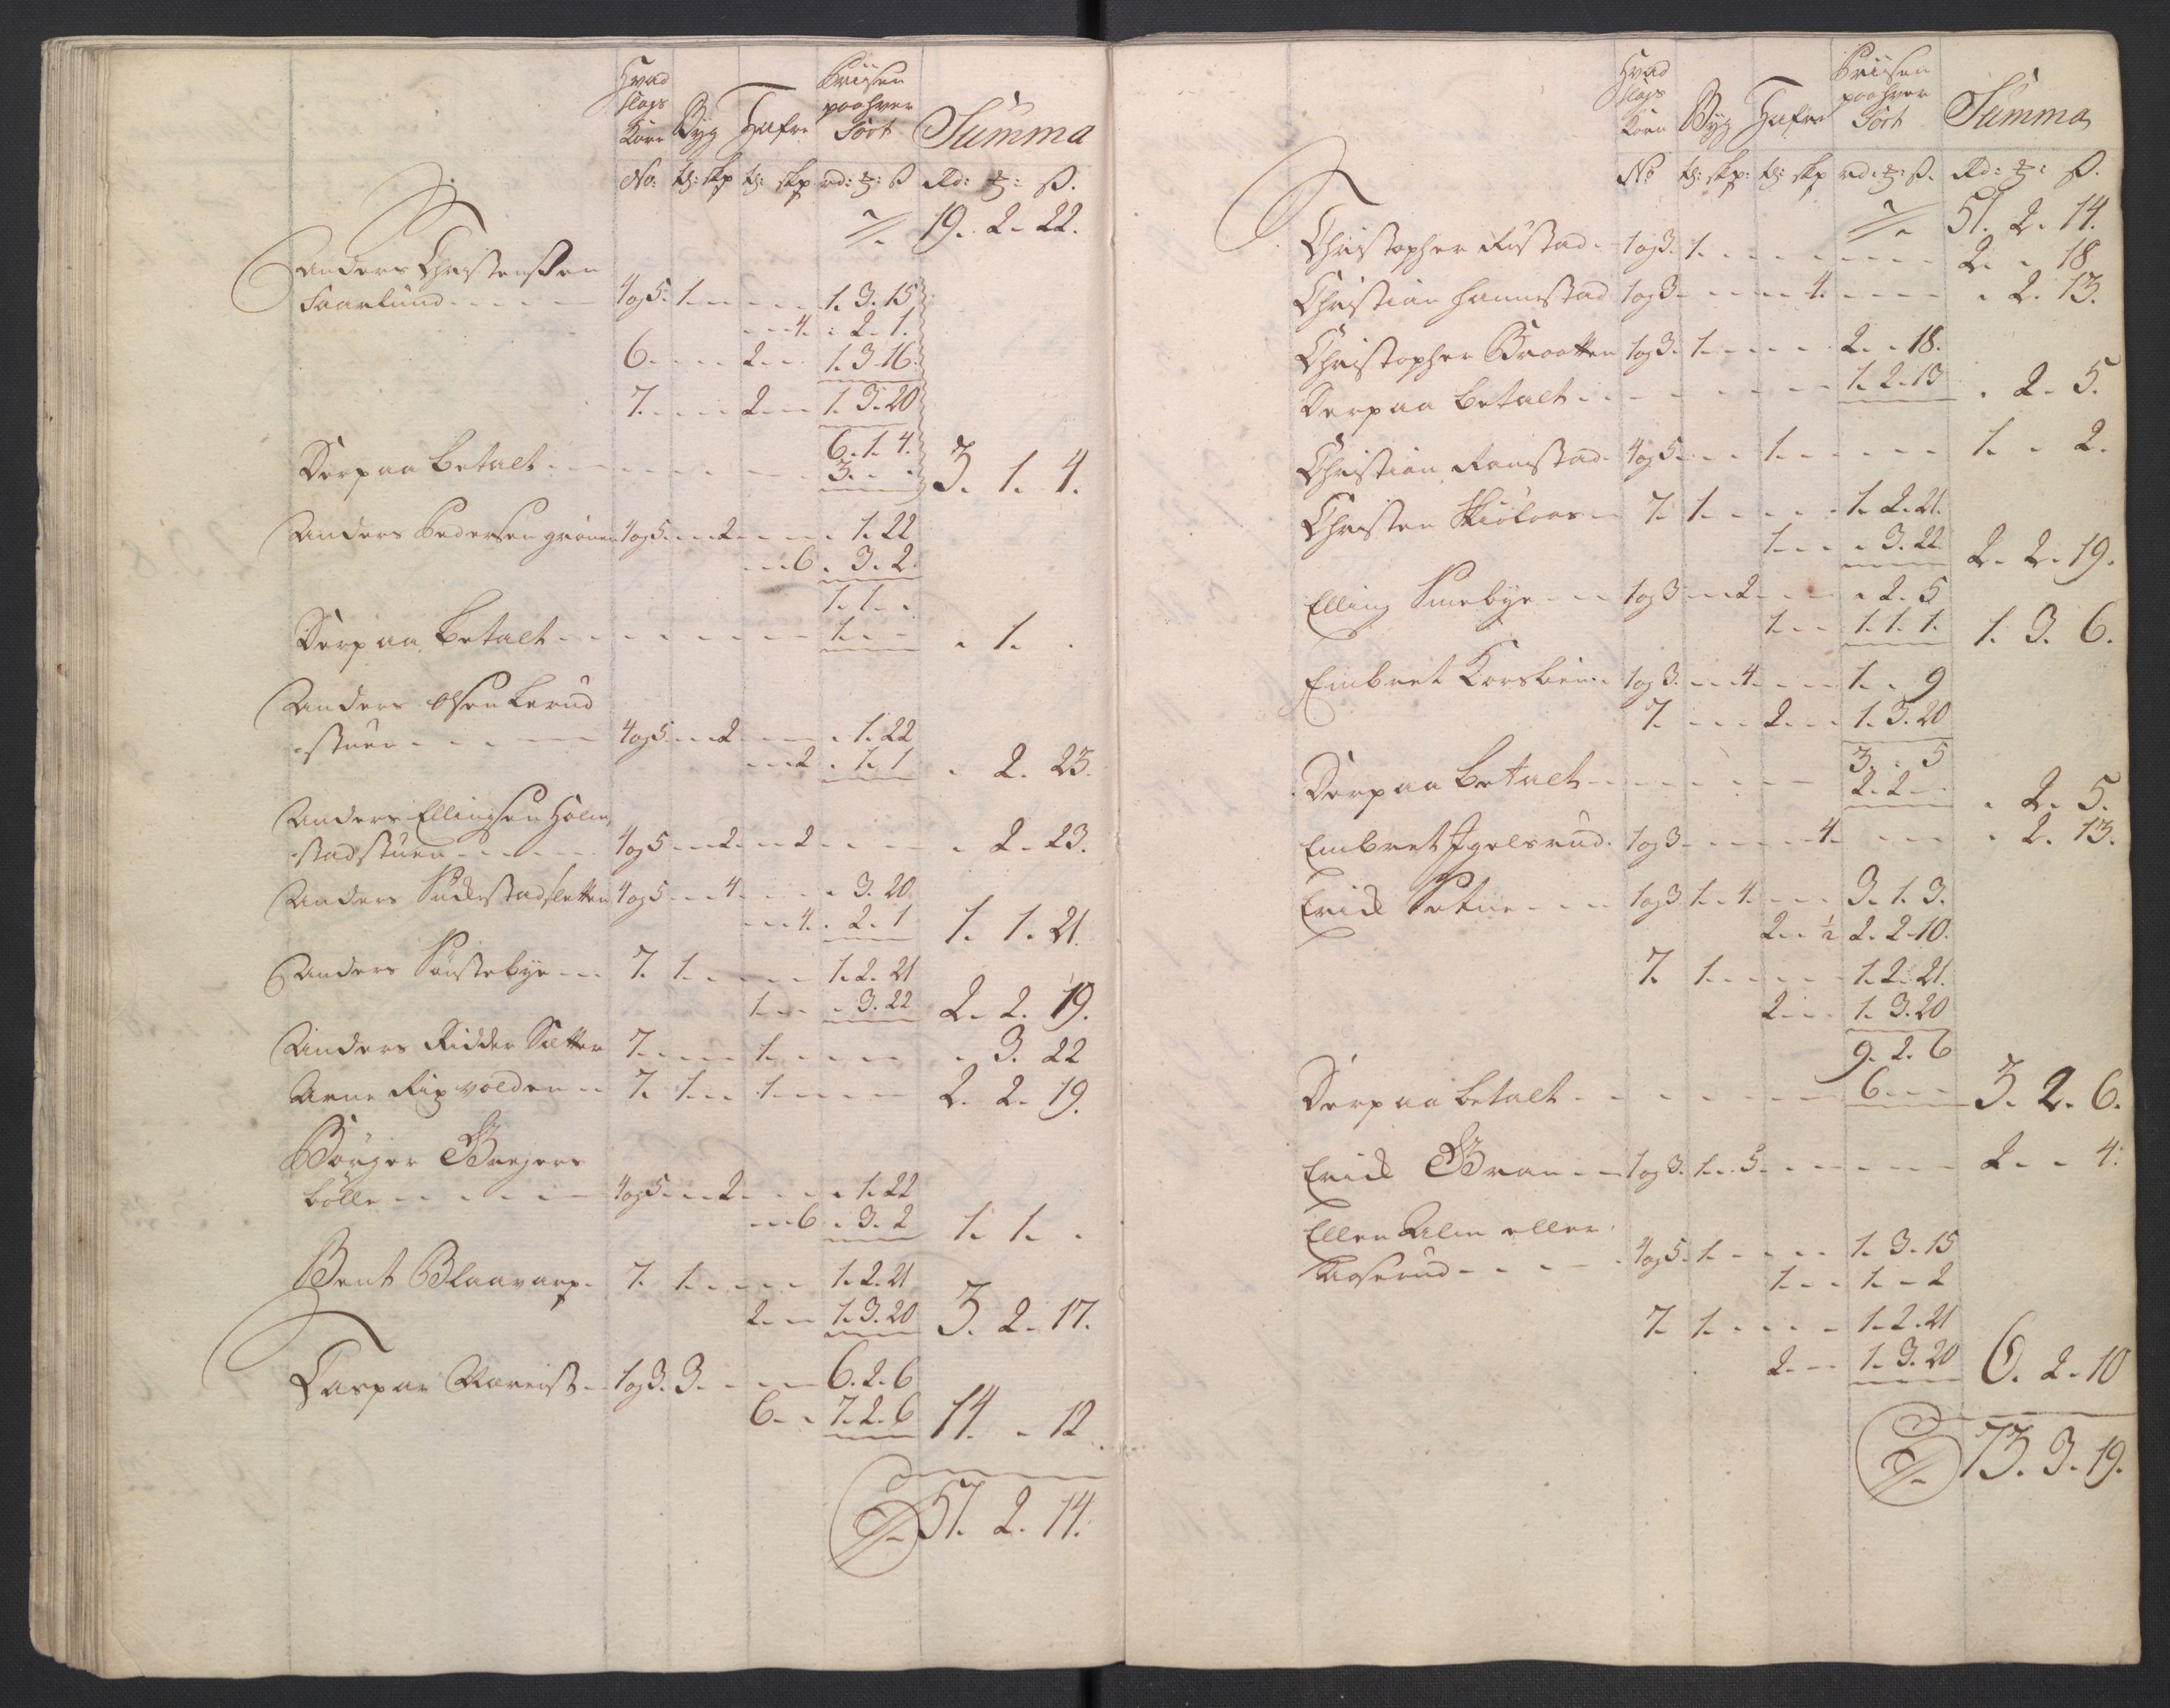 Hvad slags Korn Byg Hafre Priisen paa hver Sort Summa
No: td: skp td: skp rd: ß Rd: ß.
19. 2. 22.
Anders Christenßen
Saarlund 4 og 5. 1. 1. 3. 15
4. 2. 1.
6. 2. 1. 3. 16.
7. 2. 1. 3. 20
6. 1. 4.
Derpaa betalt 3. 3. 1. 4.
Anders Pedersen 4 og 5. 2. 1. 22
6. 3. 2.
1. 1.
Derpaa betalt 1. 1.
Anders Olsen Lerud
stuen 4 og 5. 2. 1. 22
2. 1. 1 2. 23.
Anders Ellingsen Holm
stadstuen 4 og 5 2. 2 2. 23.
Anders 4 og 5 4. 3. 20
4. 2. 1 1. 1. 21.
Anders Sønstebye 7. 1. 1. 2. 21
1. 3. 22 2. 2. 19.
Anders Ridder Sætter 7. 1. 3. 22
Arne volden 7. 1. 1. 2. 2. 19.
Børger Gregers
bølle 4 og 5 2. 1. 22
6. 3. 2 1. 1.
Bent Blaavarp 7. 1. 1. 2. 21
2. 1. 3. 20 3. 2. 17.
Caspar 1 og 3. 3. 6. 2. 6
6. 7. 2. 6 14. 12
51. 2. 14.
Hvad slags Korn Byg Hafre Priisen paa hver Sort Summa
No td: skp: td: skp rd: ß. Rd: ß.
51. 2. 14.
Christopher Rustad 1 og 3. 1. 2. 18
Christian 1 og 3 4. 2. 13.
Christopher Braatten 1 og 3. 1. 2. 18.
Derpaa betalt 1. 2. 13 2. 5.
Christian Ramstad 4 og 5. 1. 1. 2.
Christen 7. 1. 1. 2. 21.
1. 3. 22 2. 2. 19.
Elling Smebye 1 og 3 2. 2. 5
1. 1. 1. 1. 1. 3. 6.
Embret Korsbien 1 og 3. 4. 1. 9
7. 2. 1. 3. 20
3. 5
Derpaa betalt 2. 2 2. 5.
Embret Igelsrud 1 og 3 4. 2. 13.
Erich 1 og 3 1. 4. 3. 1. 3.
2. ½ 2. 2. 10.
7. 1. 1. 2. 21.
2. 1. 3. 20
9. 2. 6
Derpaa betalt 6. 3. 2. 6.
Erich Gran 1 og 3. 1. 5. 2. 4.
Ellen Alm eller
Aaserud 4 og 5. 1. 1. 3. 15
1. 1. 2
7. 1. 1. 2. 21
2. 1. 3. 20 6. 2. 10
73. 3. 19.